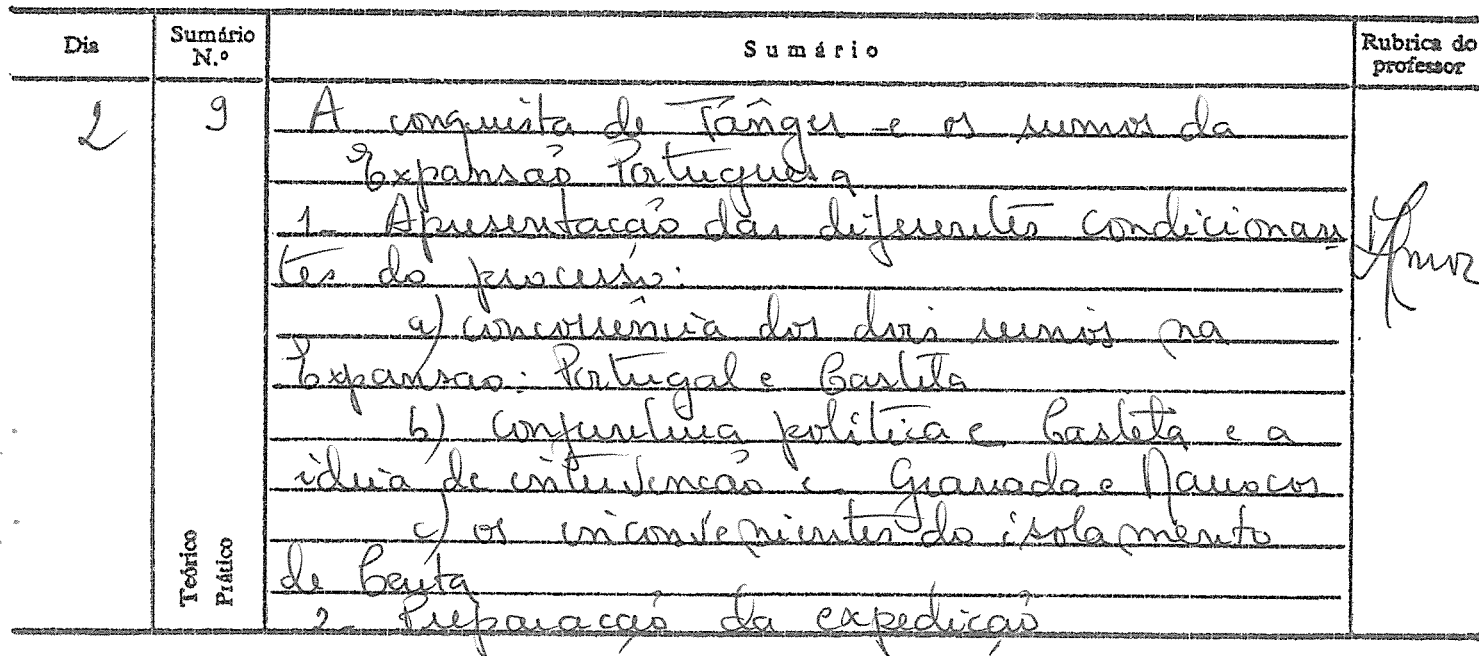 Dia Sumário N.º Sumário Rubrica do professor
2 9 A conquista de Tânger e os rumos da
Expansão Portuguesa
1- Apresentação das diferentes condicionan
tes do processo:
a) concorrência dos dois reinos na
Expansão: Portugal e Castela
b) Conjuntura política e Castela e a
ideia de intervenção e Granada e Marrocos
c) os inconvenientes do isolamento
de Ceuta
2- Preparação da expedição
Teórico
Prático